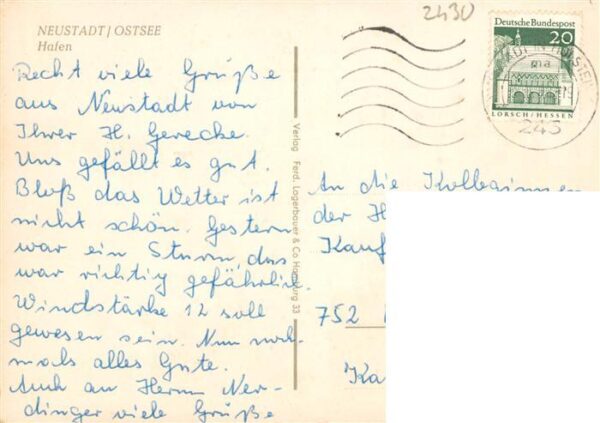 2430
NEUSTADT / OSTSEE
Hafen
Deutsche Bundespost
20
LORSCH / HESSEN
245
Recht viele Grüße
aus Neustadt von
Ihrer H. Gerecke.
Uns gefällt es gut.
Bloß das Wetter ist
nicht schön. Gestern
war ein Sturm, das
war richtig gefährlich.
Windstärke 12 soll
gewesen sein. Nun noch-
mals alles Gute.
Auch an Herrn Ner-
dinger viele Grüße
Verlag Ferd. Lagerbauer & Co Hamburg 33
An die Kolleginnen
der H
Kauf
752
Ka